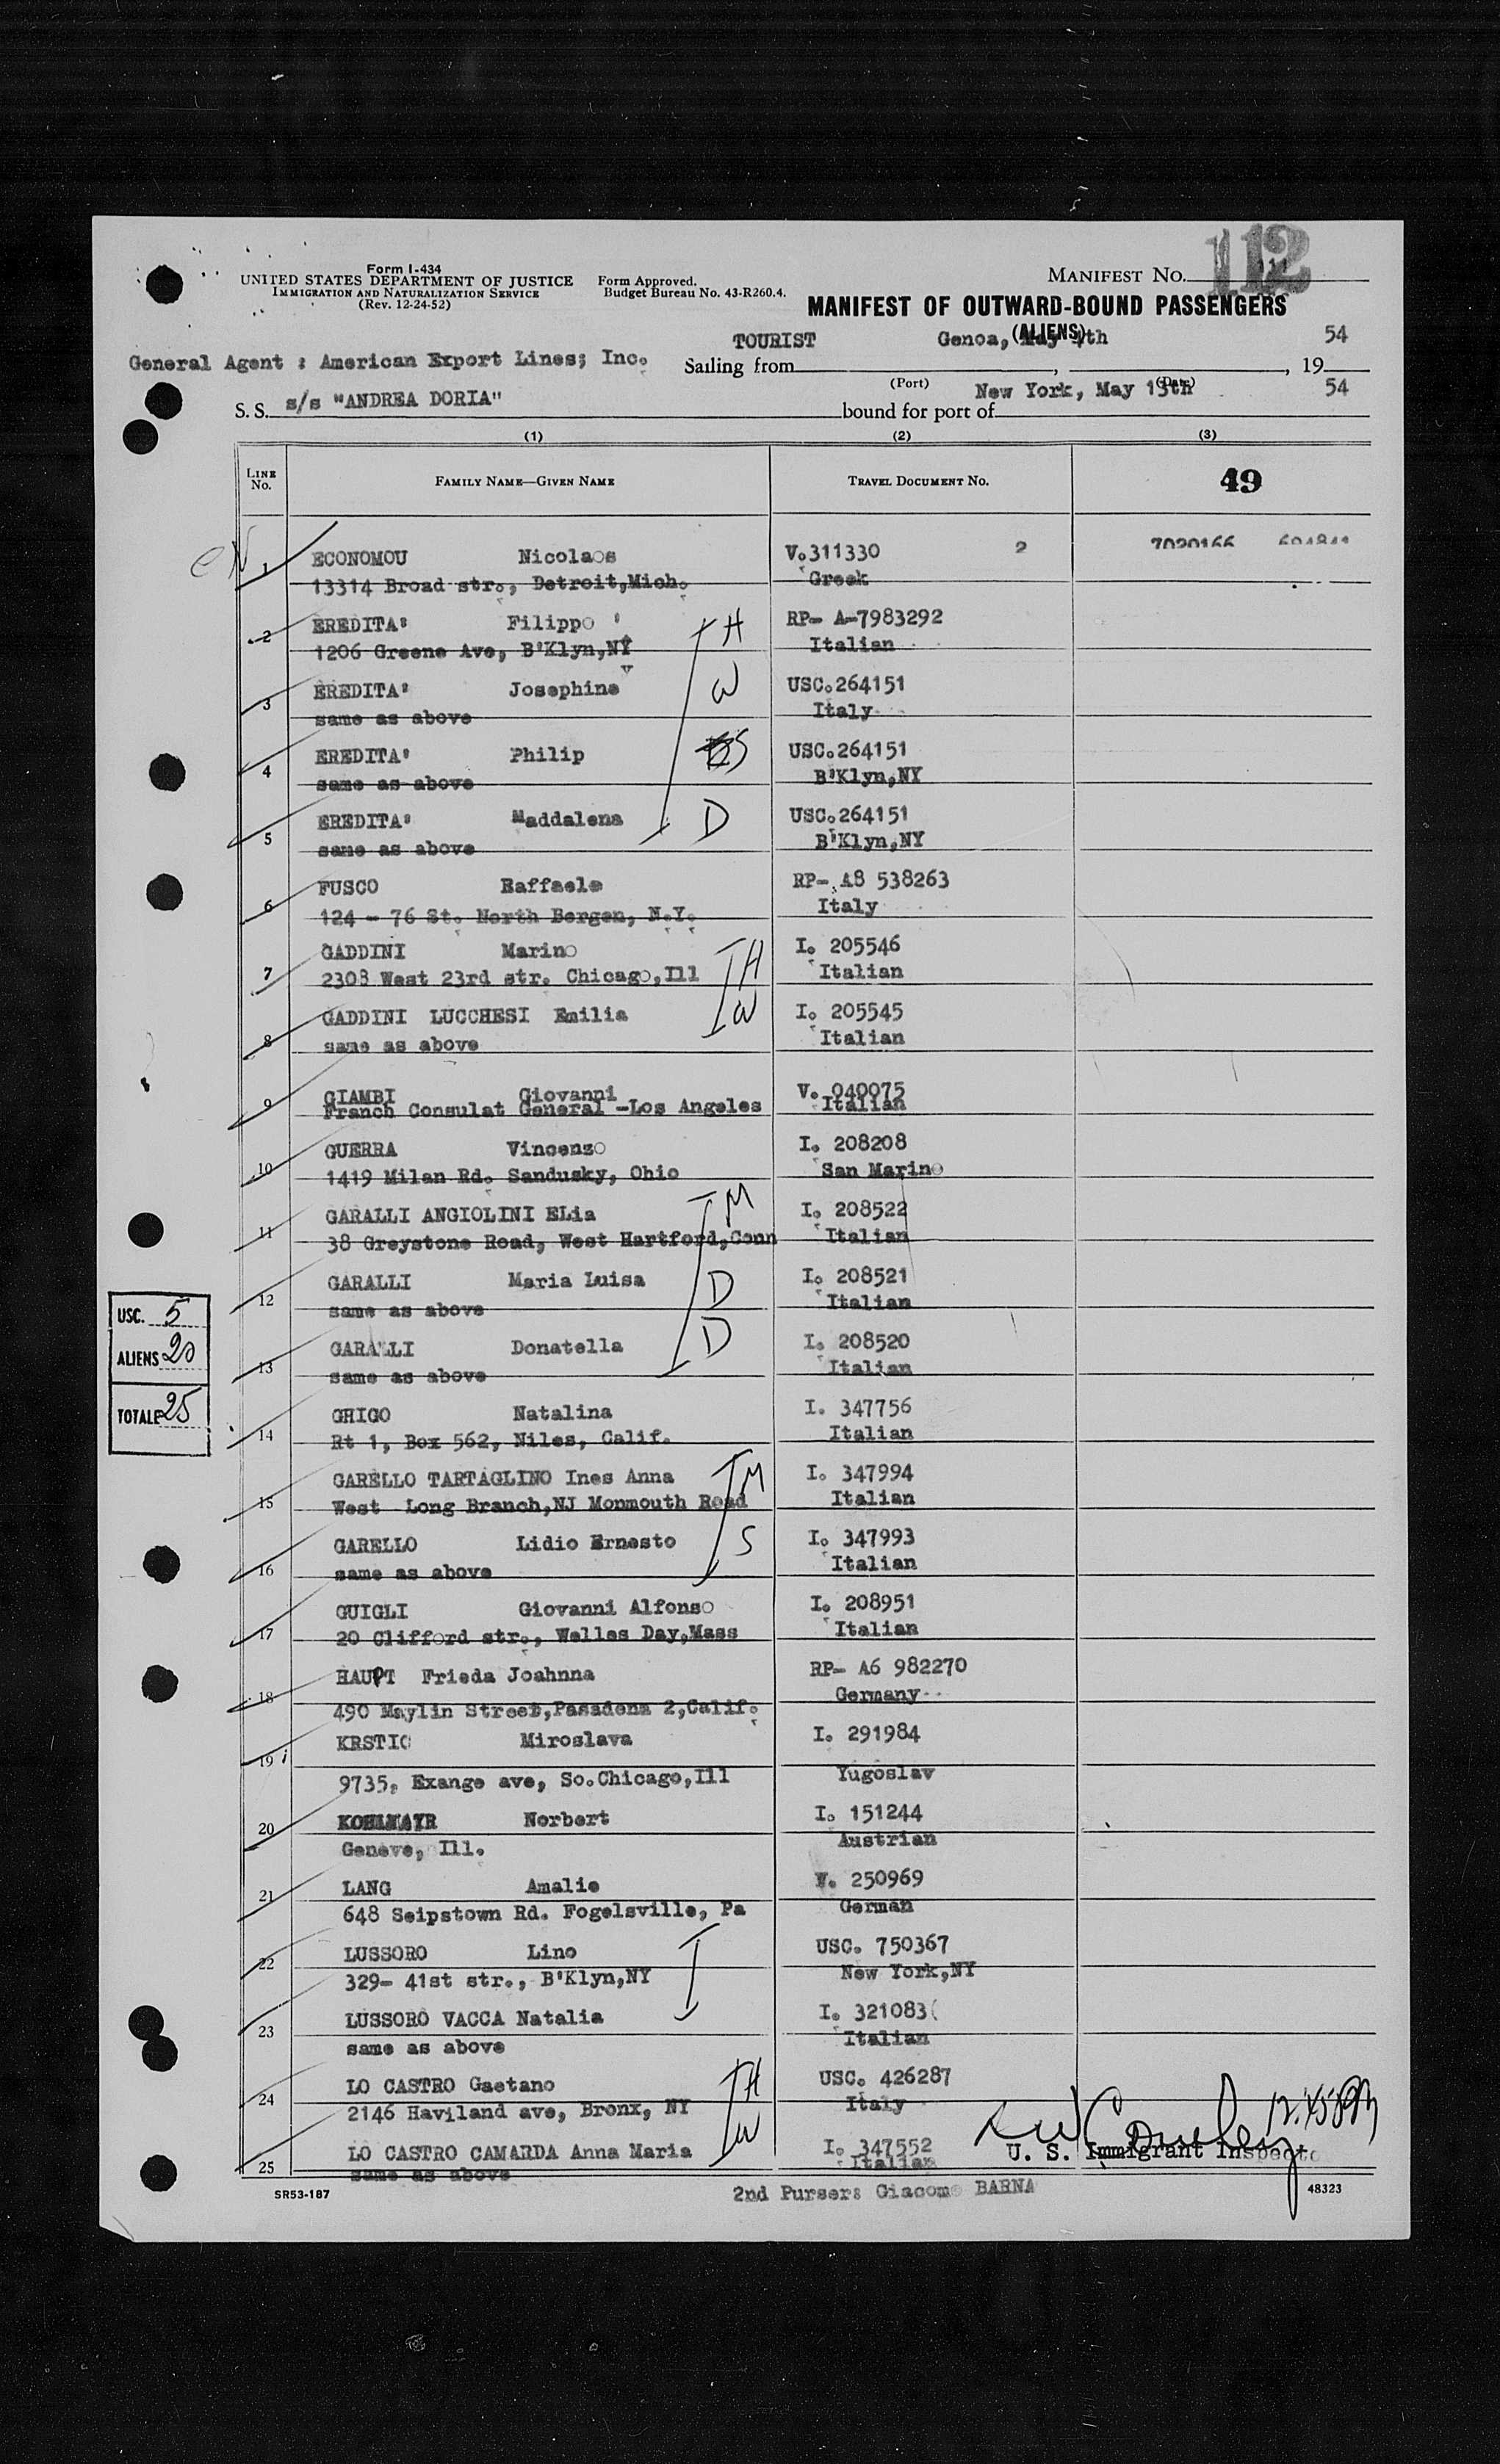 Form I-434
UNITED STATES DEPARTMENT OF JUSTICE
IMMIGRATION AND NATURALIZATION SERVICE
(Rev. 12-24-52)
Form Approved.
Budget Bureau No. 43-R260.4.
MANIFEST NO. 112
MANIFEST OF OUTWARD-BOUND PASSENGERS
(ALIENS)
TOURIST Genoa, May 4th 54
General Agent : American Export Lines; Inc. Sailing from , , 19
(Port) (Date)
New York, May 13th 54
S. S. s/s "ANDREA DORIA" bound for port of
(1) (2) (3)
LINE No. FAMILY NAME—GIVEN NAME TRAVEL DOCUMENT No. 49
1 ECONOMOU Nicolaos V.311330 2 7020166 694841
13314 Broad str., Detroit,Mich. Greek
2 EREDITA' Filippo H RP- A-7983292
1206 Greene Ave, B'Klyn,NY Italian
3 EREDITA' Josephine W USC.264151
same as above Italy
4 EREDITA' Philip S USC.264151
same as above B'Klyn,NY
5 EREDITA' Maddalena D USC.264151
same as above B'Klyn,NY
6 FUSCO Raffaele RP- A8 538263
124 - 76 St. North Bergen, N.Y. Italy
7 GADDINI Marino H I. 205546
2308 West 23rd str. Chicago,Ill Italian
8 GADDINI LUCCHESI Emilia W I. 205545
same as above Italian
9 GIAMBI Giovanni V. 040075
Franch Consulat General -Los Angeles Italian
10 GUERRA Vincenzo I. 208208
1419 Milan Rd. Sandusky, Ohio San Marino
11 GARALLI ANGIOLINI ELia M I. 208522
38 Greystone Road, West Hartford,Conn Italian
12 GARALLI Maria Luisa D I. 208521
same as above Italian
13 GARALLI Donatella D I. 208520
same as above Italian
14 GHIGO Natalina I. 347756
Rt 1, Box 562, Niles, Calif. Italian
15 GARELLO TARTAGLINO Ines Anna M I. 347994
West Long Branch,NJ Monmouth Road Italian
16 GARELLO Lidio Ernesto S I. 347993
same as above Italian
17 GUIGLI Giovanni Alfonso I. 208951
20 Clifford str., Welles Day,Mass Italian
18 HAUPT Frieda Joahnna RP- A6 982270
490 Maylin Street,Pasadena 2,Calif. Germany
19 KRSTIC Miroslava I. 291984
9735, Exange ave, So.Chicago,Ill Yugoslav
20 KOHLMAYR Norbert I. 151244
Geneve, Ill. Austrian
21 LANG Amalie V. 250969
648 Seipstown Rd. Fogelsville, Pa German
22 LUSSORO Lino USC. 750367
329- 41st str., B'Klyn,NY New York,NY
23 LUSSORO VACCA Natalia I. 321083
same as above Italian
24 LO CASTRO Gaetano H USC. 426287
2146 Haviland ave, Bronx, NY Italy
25 LO CASTRO CAMARDA Anna Maria W I. 347552
same as above Italian
USC. 5
ALIENS 20
TOTALE 25
12.45 PM
U. S. Immigrant Inspector
SR53-187 2nd Purser: Giacomo BARNA 48323